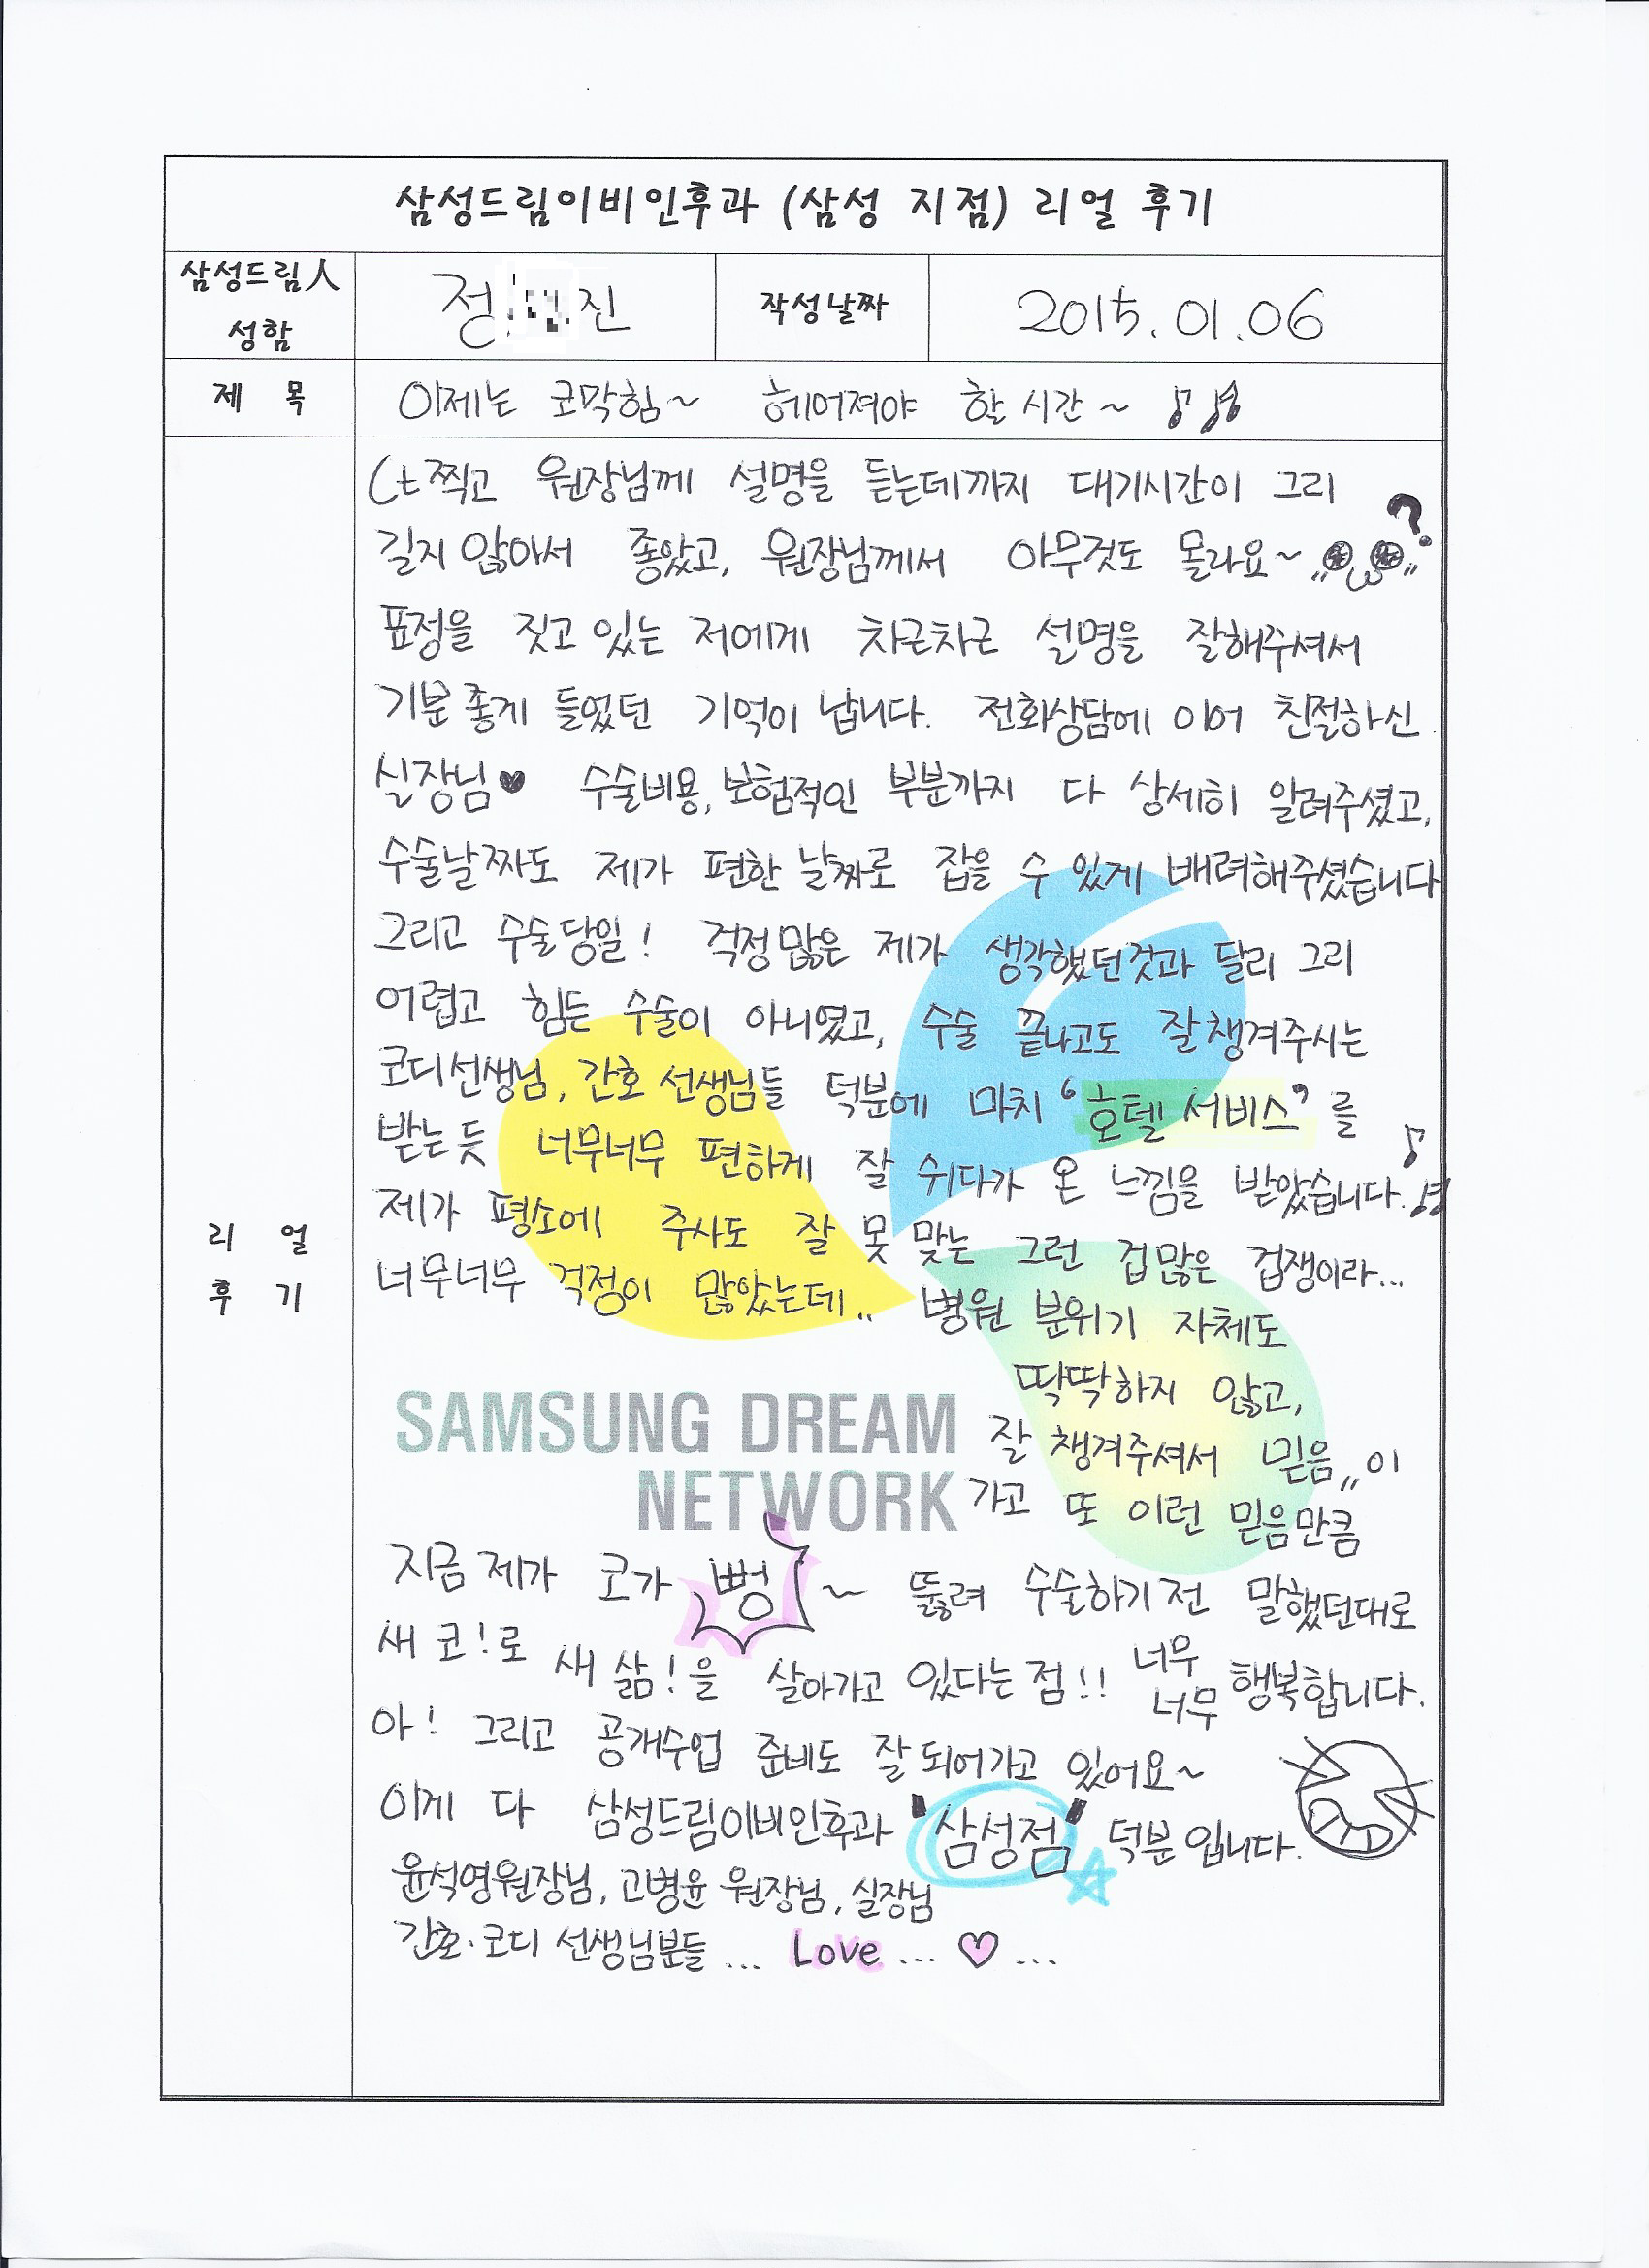 삼성드림이비인후과 (삼성 지점) 리얼 후기
삼성드림人 성함
정 진
작성날짜
2015.01.06
제 목
이제는 코막힘~ 헤어져야 할 시간~ ♪♪
리 얼 후 기
Ct찍고 원장님께 설명을 듣는데까지 대기시간이 그리
길지 않아서 좋았고, 원장님께서 아무것도 몰라요~ ?
표정을 짓고 있는 저에게 차근차근 설명을 잘해주셔서
기분 좋게 들었던 기억이 납니다. 전화상담에 이어 친절하신
실장님♥ 수술비용, 보험적인 부분까지 다 상세히 알려주셨고,
수술날짜도 제가 편한 날짜로 잡을 수 있게 배려해주셨습니다
그리고 수술당일! 걱정많은 제가 생각했던것과 달리 그리
어렵고 힘든 수술이 아니였고, 수술 끝나고도 잘챙겨주시는
코디선생님, 간호 선생님들 덕분에 마치 '호텔 서비스'를
받는듯 너무너무 편하게 잘 쉬다가 온 느낌을 받았습니다. ♪♪
제가 평소에 주사도 잘 못 맞는 그런 겁많은 겁쟁이라...
너무너무 걱정이 많았는데.. 병원 분위기 자체도
딱딱하지 않고,
잘 챙겨주셔서 믿음,,이
가고 또 이런 믿음만큼
SAMSUNG DREAM
NETWORK
지금 제가 코가 뻥~ 뚫려 수술하기전 말했던대로
새 코!로 새 삶!을 살아가고 있다는 점!! 너무 너무 행복합니다.
아! 그리고 공개수업 준비도 잘 되어가고 있어요~
이게 다 삼성드림이비인후과 '삼성점' 덕분입니다.
윤석영원장님, 고병윤 원장님, 실장님
간호·코디 선생님분들 ... Love ... ♡ ...